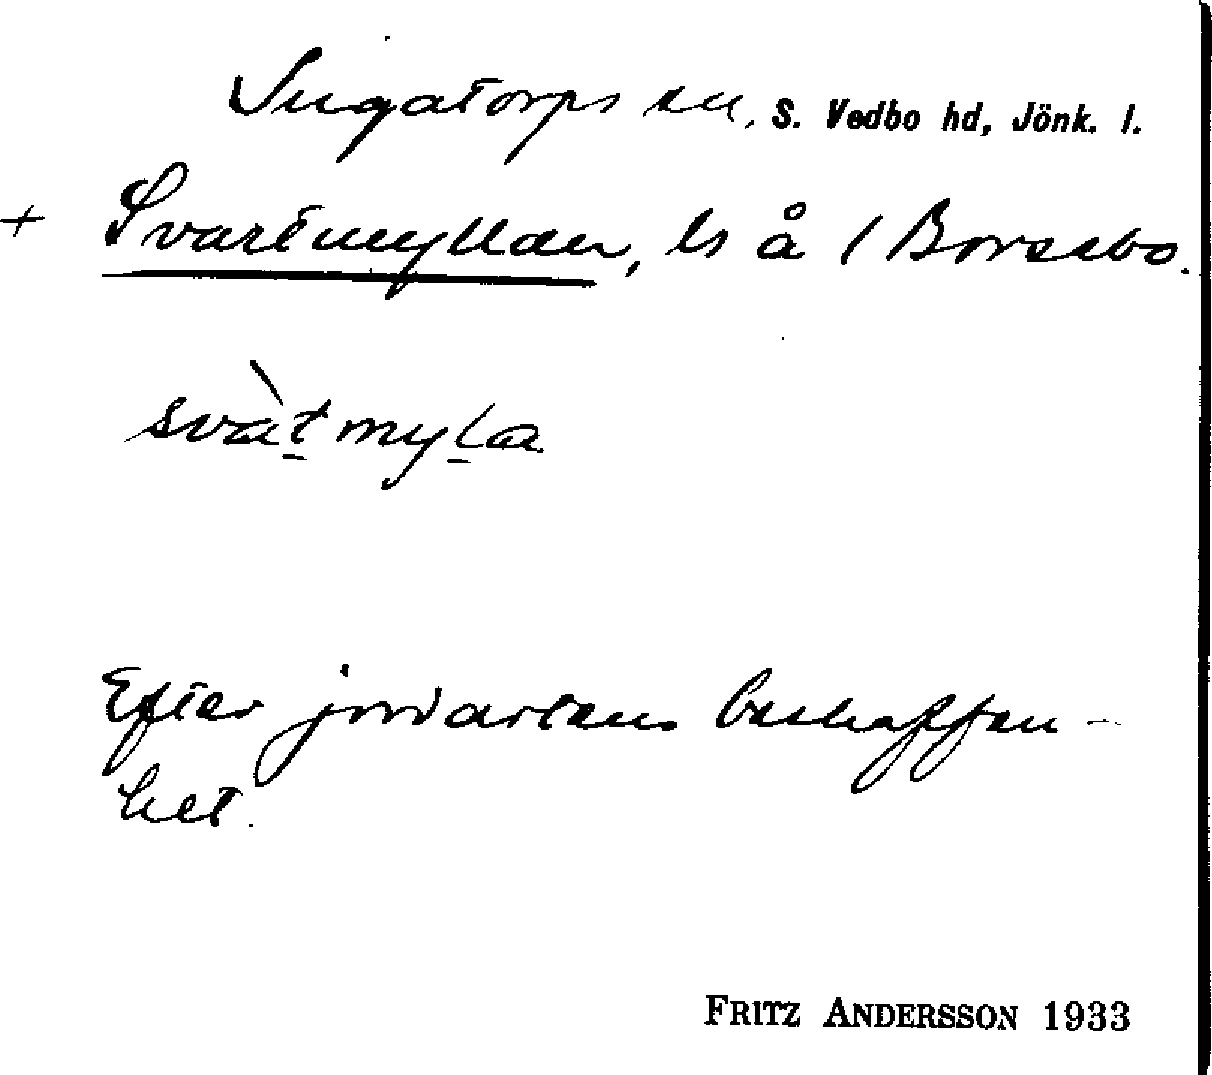 Ingatorps sn, S. Vedbo hd, Jönk. l.
+ Svartmyllan, ls å / Borsebo.
svàt̲myl̲a
Efter jordartens beskaffen-
het.
FRITZ ANDERSSON 1933